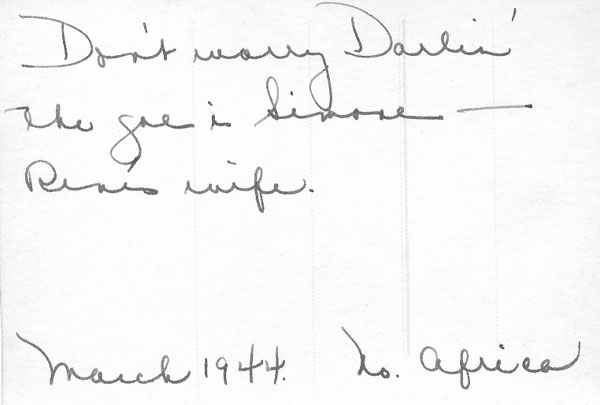 Don't worry Darlin'
the gal is Simone —
Rene's wife.
March 1944. No. Africa